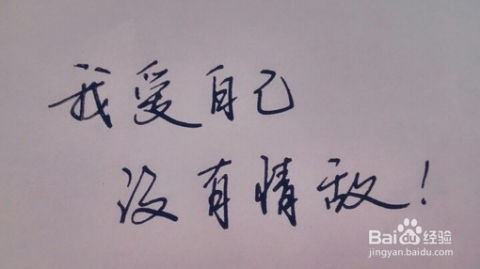 我爱自己
没有情敌！
Baidu经验
jingyan.baidu.com